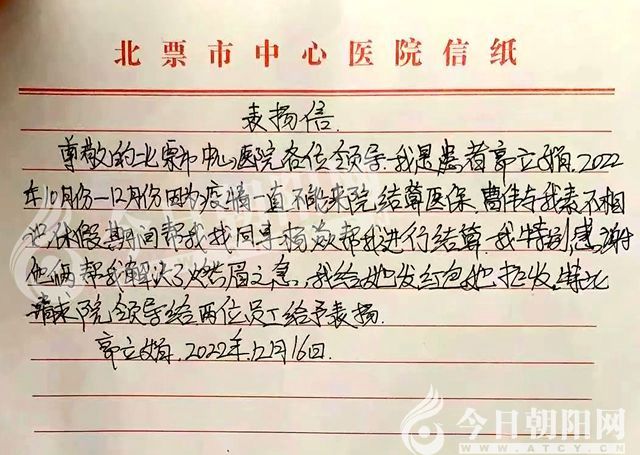 北票市中心医院信纸
表扬信.
尊敬的北票市中心医院各位领导.我是患者郭立娟.2022
年10月份一12月份因为疫情一直不能来院结算医保.曹伟与我素不相
识休假期间帮我找同事杨焱帮我进行结算.我特别感谢
他俩帮我解决了燃眉之急,我给她发红包她拒收,特此
请求院领导给两位员工给予表扬.
郭立娟.2022年.12月16日.
今日朝阳网
WWW.ATCY.CN